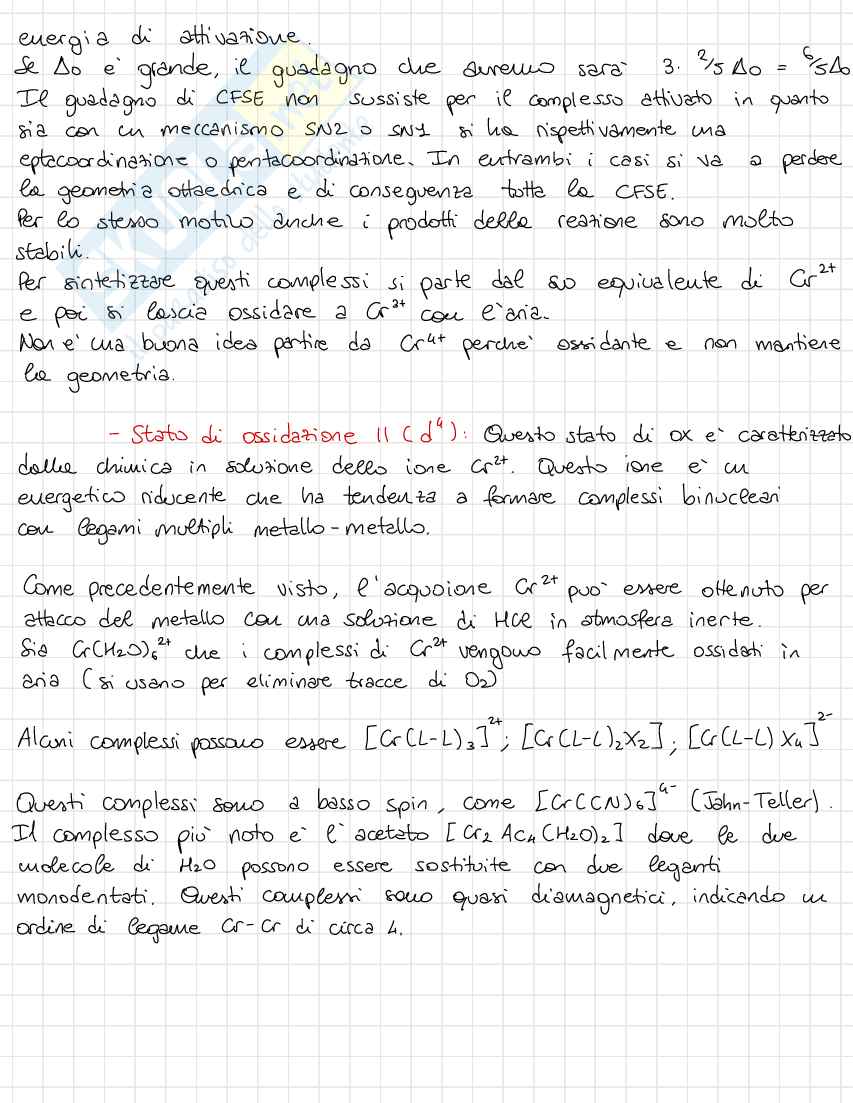 energia di attivazione.
Se Δo è grande, il guadagno che avremo sarà 3· 2/5 Δo = 6/5 Δo
Il guadagno di CFSE non sussiste per il complesso attivato in quanto
sia con un meccanismo SN2 o SN1 si ha rispettivamente una
eptacoordinazione o pentacoordinazione. In entrambi i casi si va a perdere
la geometria ottaedrica e di conseguenza tutta la CFSE.
Per lo stesso motivo anche i prodotti della reazione sono molto
stabili.
Per sintetizzare questi complessi si parte dal suo equivalente di Cr²⁺
e poi si lascia ossidare a Cr³⁺ con l'aria.
Non è una buona idea partire da Cr⁴⁺ perchè ossidante e non mantiene
la geometria.
- Stato di ossidazione II (d⁴): Questo stato di ox è caratterizzato
dalla chimica in soluzione dello ione Cr²⁺. Questo ione è un
energetico riducente che ha tendenza a formare complessi binucleari
con legami multipli metallo-metallo.
Come precedentemente visto, l'acquoione Cr²⁺ può essere ottenuto per
attacco del metallo con una soluzione di HCl in atmosfera inerte.
Sia Cr(H2O)₆²⁺ che i complessi di Cr²⁺ vengono facilmente ossidati in
aria (si usano per eliminare tracce di O2)
Alcuni complessi possono essere [Cr(L-L)₃]²⁺; [Cr(L-L)₂X₂]; [Cr(L-L)X₄]²⁻
Questi complessi sono a basso spin, come [Cr(CN)₆]⁴⁻ (Jahn-Teller).
Il complesso più noto è l'acetato [Cr₂Ac₄(H2O)₂] dove le due
molecole di H2O possono essere sostituite con due leganti
monodentati. Questi complessi sono quasi diamagnetici, indicando un
ordine di legame Cr-Cr di circa 4.